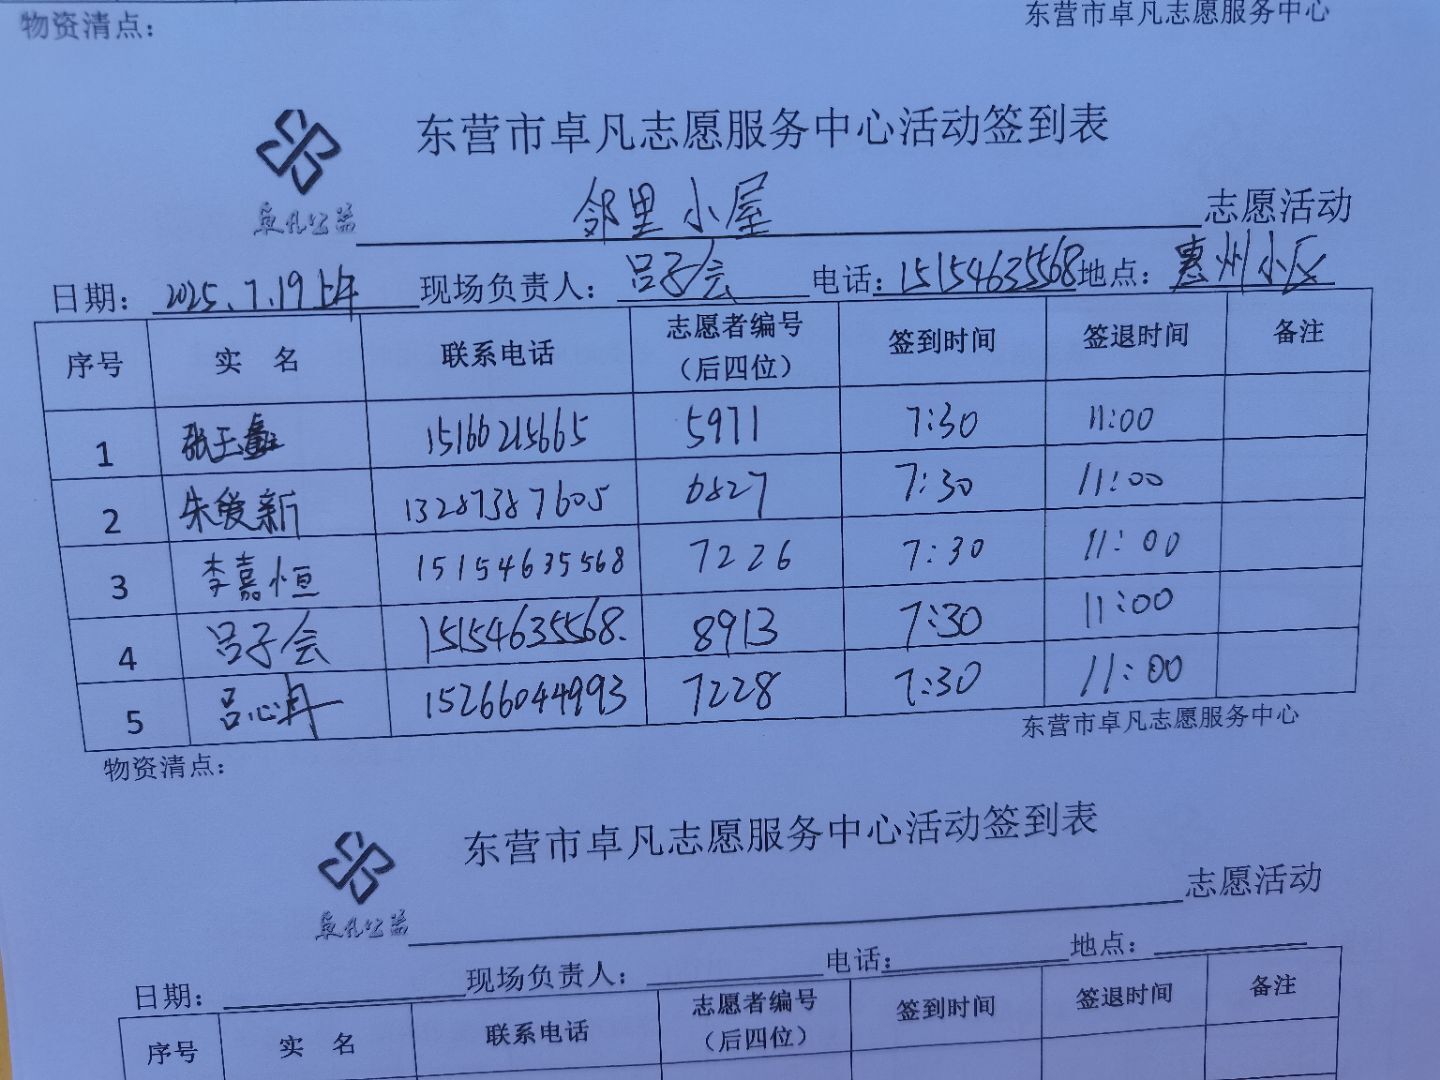 物资清点：
东营市卓凡志愿服务中心
东营市卓凡志愿服务中心活动签到表
卓凡公益
邻里小屋 志愿活动
日期：2025.7.19上午 现场负责人：吕子会 电话：15154635568 地点：惠州小区
序号 实 名 联系电话 志愿者编号（后四位） 签到时间 签退时间 备注
1 张玉 15166215665 5971 7:30 11:00
2 朱爱新 13287387605 6827 7:30 11:00
3 李嘉恒 15154635568 7226 7:30 11:00
4 吕子会 15154635568. 8913 7:30 11:00
5 吕心冉 15266044993 7228 7:30 11:00
物资清点：
东营市卓凡志愿服务中心
东营市卓凡志愿服务中心活动签到表
卓凡公益
志愿活动
日期： 现场负责人： 电话： 地点：
序号 实 名 联系电话 志愿者编号（后四位） 签到时间 签退时间 备注